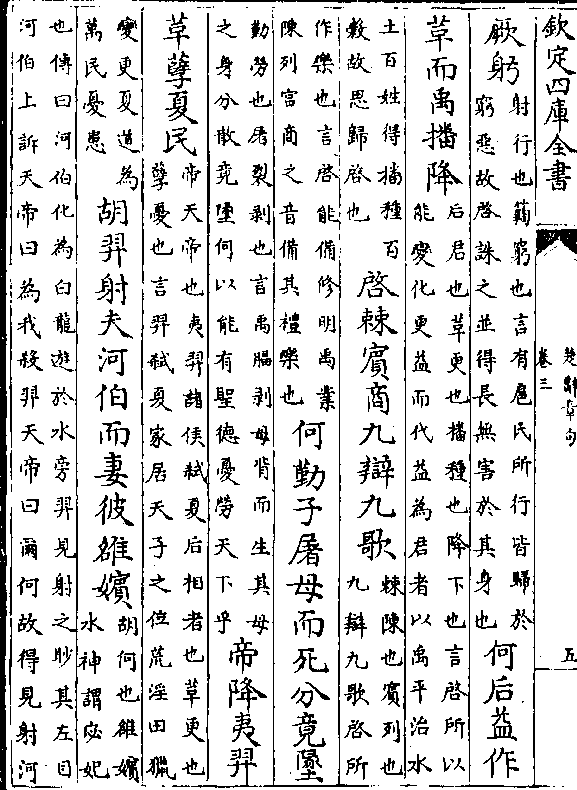 欽定四庫全書
楚辭章句
卷三
五
厥躬
射行也䈑窮也言有扈氏所行皆歸於
窮惡故啓誅之並得長無害於其身也
何后益作
革而禹播降
后君也革更也播種也降下也言啓所以
能變化更益而代益為君者以禹平治水
土百姓得播種百
穀故思歸啓也
啓棘賓商九辯九歌
棘陳也賓列也
九辯九歌啓所
作樂也言啓能備修明禹業
陳列宫商之音備其禮樂也
何勤子屠母而死分竟墬
勤勞也屠裂剥也言禹𦠆剥母背而生其母
之身分散竟墬何以能有聖德憂勞天下乎
帝降夷羿
革孽夏民
帝天帝也夷羿諸侯弑夏后相者也革更也
孽憂也言羿弑夏家居天子之位荒淫田獵
變更夏道為
萬民憂患
胡羿射夫河伯而妻彼雒嬪
胡何也雒嬪
水神謂宓妃
也傳曰河伯化為白龍遊於水旁羿見射之眇其左目
河伯上訴天帝曰為我殺羿天帝曰爾何故得見射河